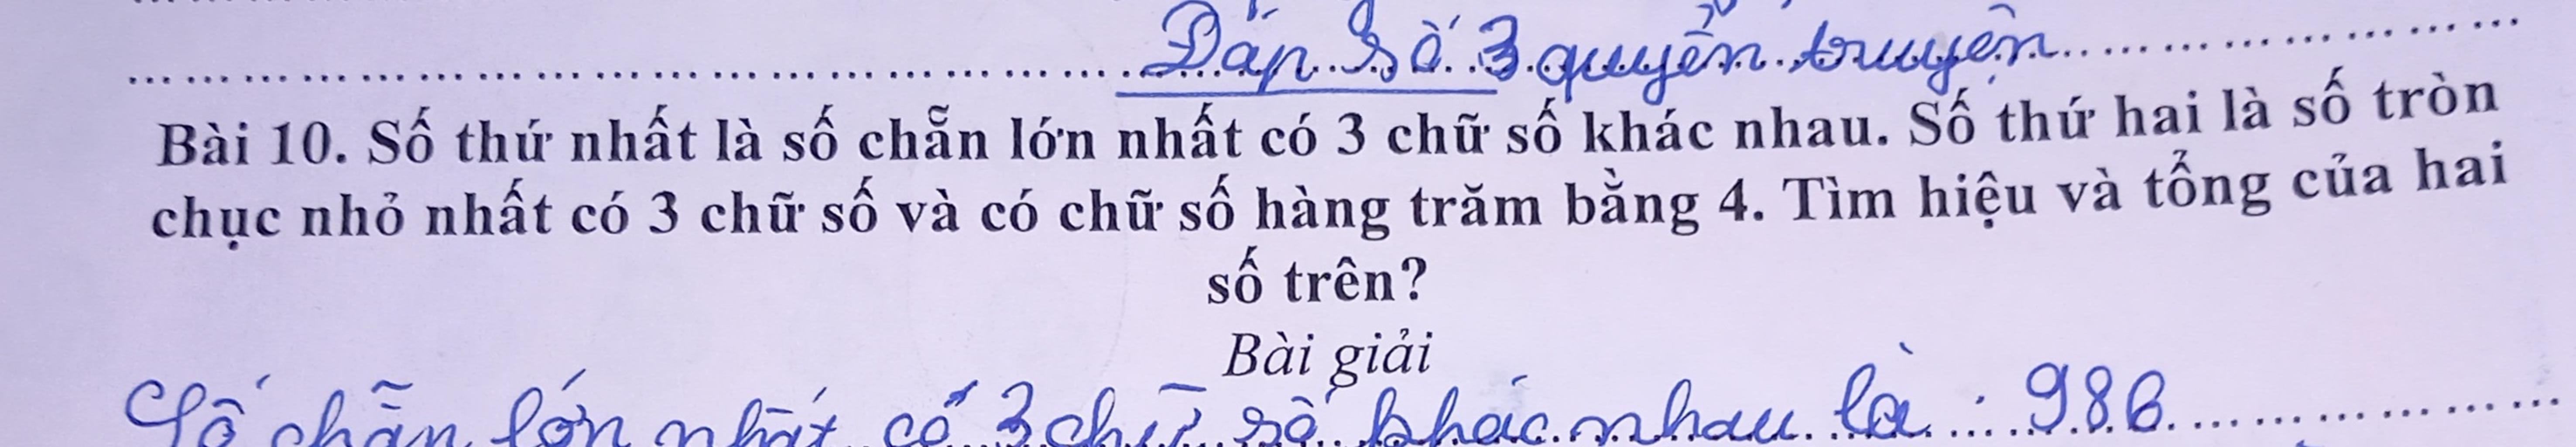 Đáp số 3 quyển truyện
Bài 10. Số thứ nhất là số chẵn lớn nhất có 3 chữ số khác nhau. Số thứ hai là số tròn
chục nhỏ nhất có 3 chữ số và có chữ số hàng trăm bằng 4. Tìm hiệu và tổng của hai
số trên?
Bài giải
Số chẵn lớn nhất có 3 chữ số khác nhau là : 986